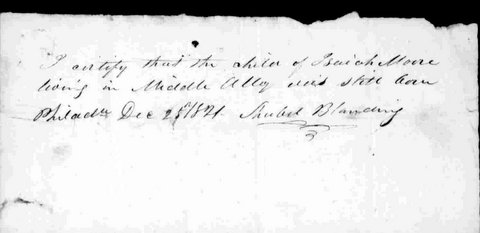 I certify that the child of Isaiah Moore
living in Middle Alley was still born
Philada Dec 25 1821. Shubel Blanding